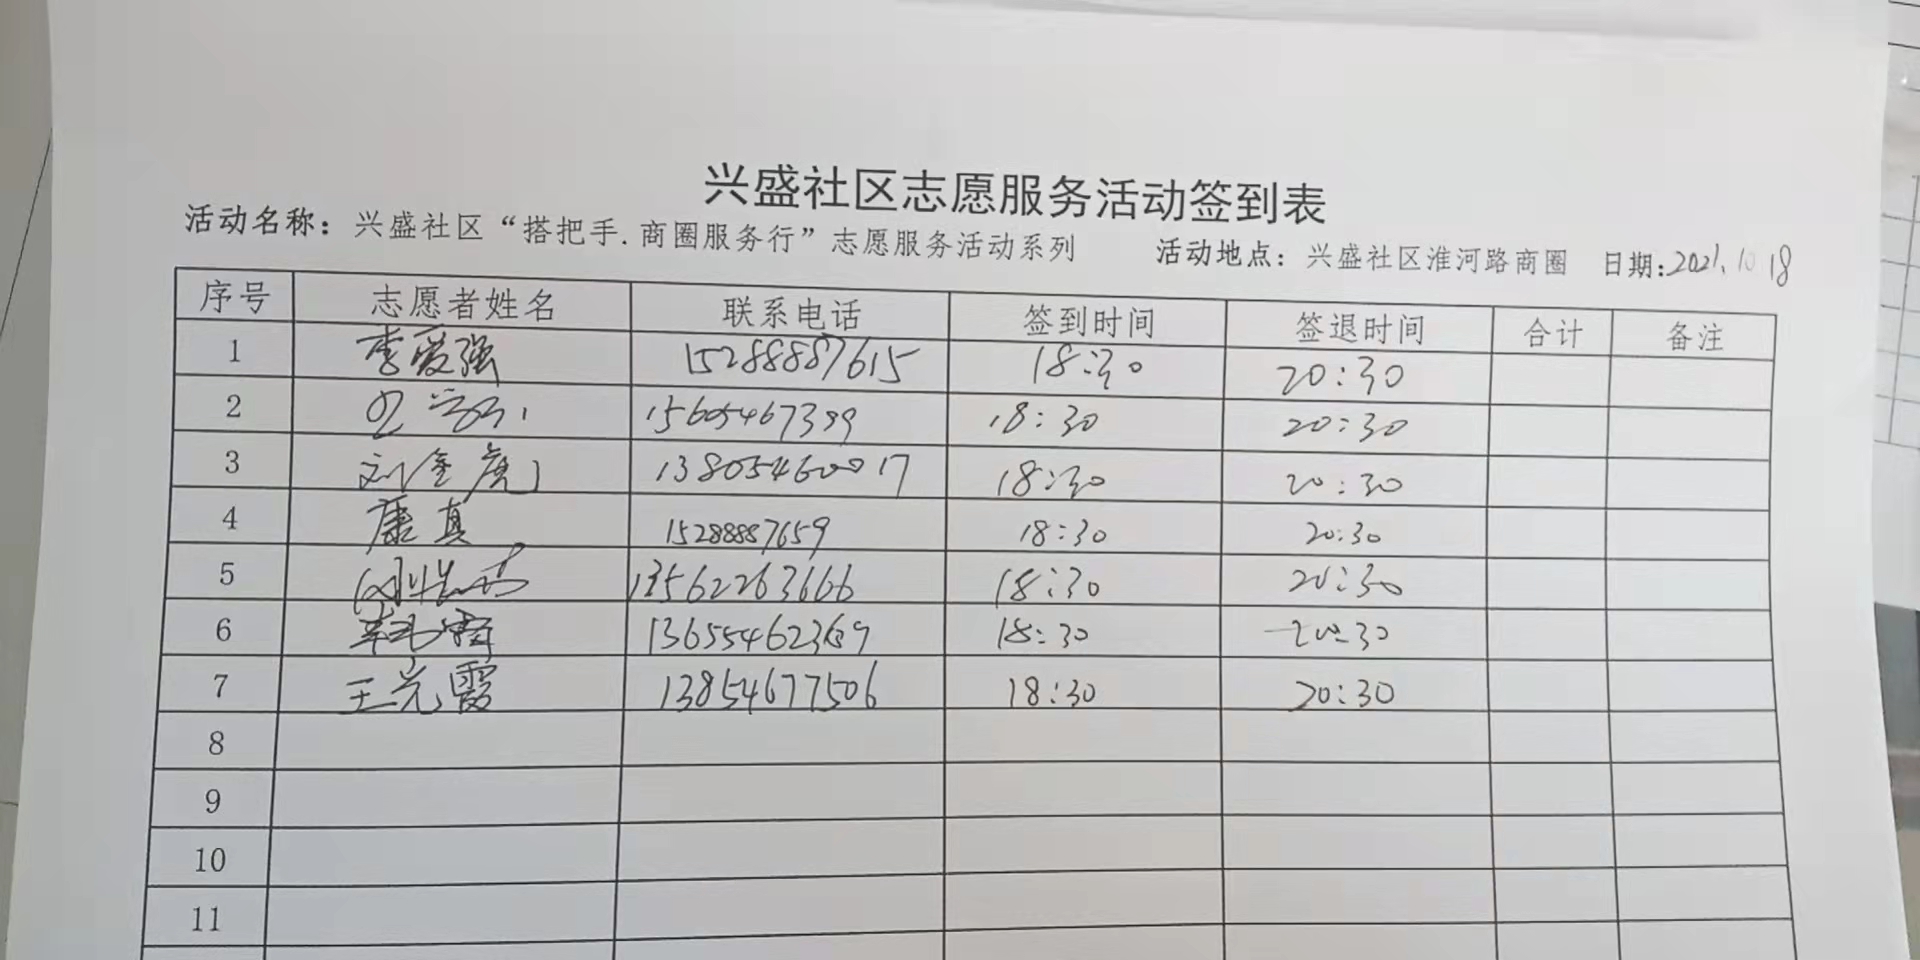 兴盛社区志愿服务活动签到表
活动名称：兴盛社区“搭把手.商圈服务行”志愿服务活动系列 活动地点：兴盛社区淮河路商圈 日期:2021.10 18
序号 志愿者姓名 联系电话 签到时间 签退时间 合计 备注
1 李爱强 15288887615 18:30 20:30
2 15605467399 18:30 20:30
3 刘金虎 13805460017 18:30 20:30
4 康真 15288887659 18:30 20:30
5 13562263666 18:30 20:30
6 18:30 20:30
7 王光霞 13854677506 18:30 20:30
8
9
10
11